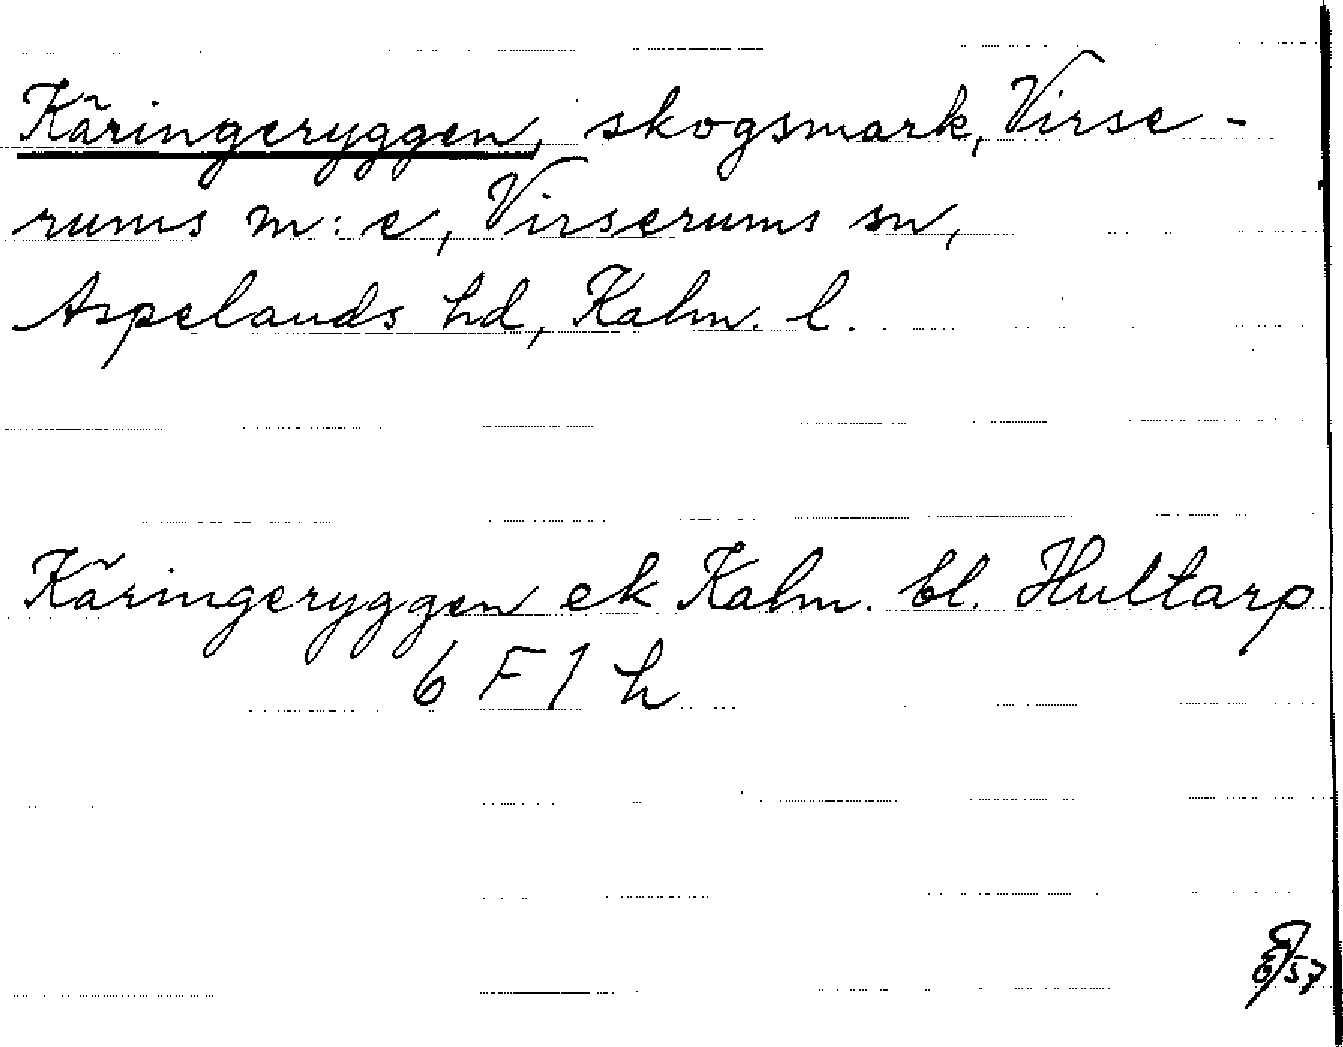 Käringeryggen, skogsmark, Virse-
rums m:e, Virserums sn,
Aspelands hd, Kalm. l.
Käringeryggen ek Kalm. bl. Hultarp
6 F 1 h
6/57